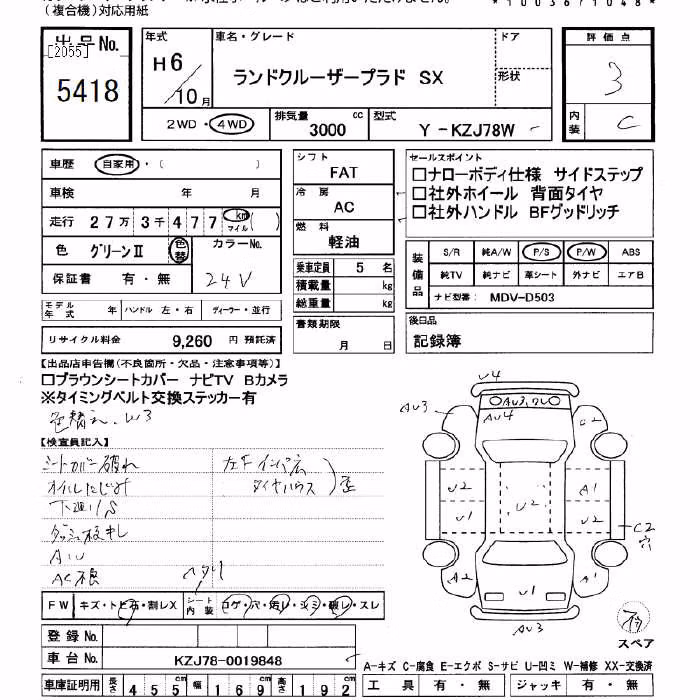 (複合機)対応用紙
出品No.
[2055]
5418
年式
H6/10月
車名・グレード
ランドクルーザープラド SX
ドア
形状
評価点
3
内装
C
2WD・4WD
排気量
3000 cc
型式
Y-KZJ78W
車歴
自家用・( )
車検
年 月
走行
27万3千477 km マイル( )
色
グリーンⅡ
色替
カラーNo.
24V
保証書
有・無
モデル年式
年
ハンドル 左・右
ディーラー・並行
リサイクル料金
9,260 円 預託済
シフト
FAT
冷房
AC
燃料
軽油
乗車定員 5 名
積載量 kg
総重量 kg
書類期限
月 日
セールスポイント
□ナローボディ仕様 サイドステップ
□社外ホイール 背面タイヤ
□社外ハンドル BFグッドリッチ
装備品
S/R 純A/W P/S P/W ABS
純TV 純ナビ 革シート 外ナビ エアB
ナビ型番: MDV-D503
後日品
記録簿
【出品店申告欄(不良箇所・欠品・注意事項等)】
□ブラウンシートカバー ナビTV Bカメラ
※タイミングベルト交換ステッカー有
色替え W3
【検査員記入】
シートカバー破れ
オイルにじみ
下廻りS
AC不良
FW
キズ・トビ石・割レX
シート内装
コゲ・穴・汚レ・シミ・破レ・スレ
登録No.
車台No.
KZJ78-0019848
車庫証明用
長さ 455cm
幅 169cm
高さ 192cm
U4
AU3
AU3,ワレ
AU4
C2
U2
U2
A1
U1
U2
C2
穴
A2
U1
A1
AU3
スペア
A-キズ C-腐食 E-エクボ S-サビ U-凹ミ W-補修 XX-交換済
工具 有・無
ジャッキ 有・無